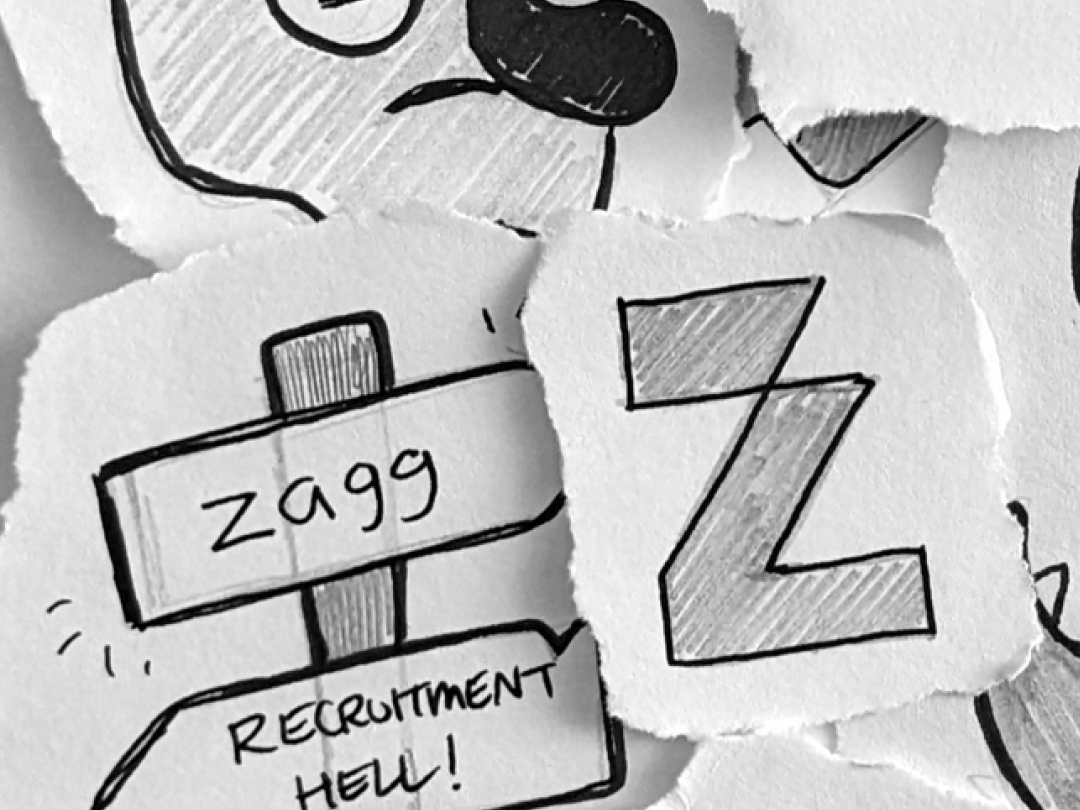 zagg
RECRUITMENT
HELL!
Z